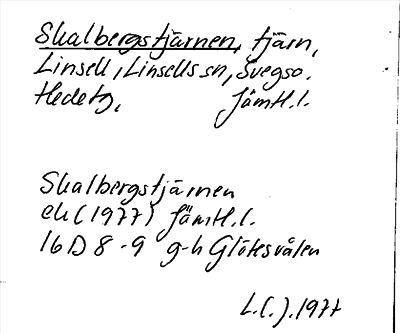 Skalbergstjärnen, tjärn,
Linsell, Linsells sn, Svegs o.
Hede tg, Jämtl.l.
Skalbergstjärnen
ek (1977) Jämtl.l.
16 D 8-9 g-h Glötesvålen
L.C.J. 1977